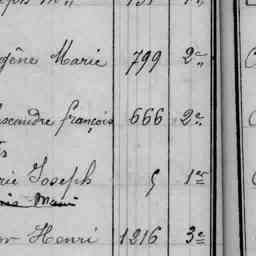 gène Marie 799 2e
exandre françois 666 2e
rie Joseph 5 1er
Henri 1216 3e